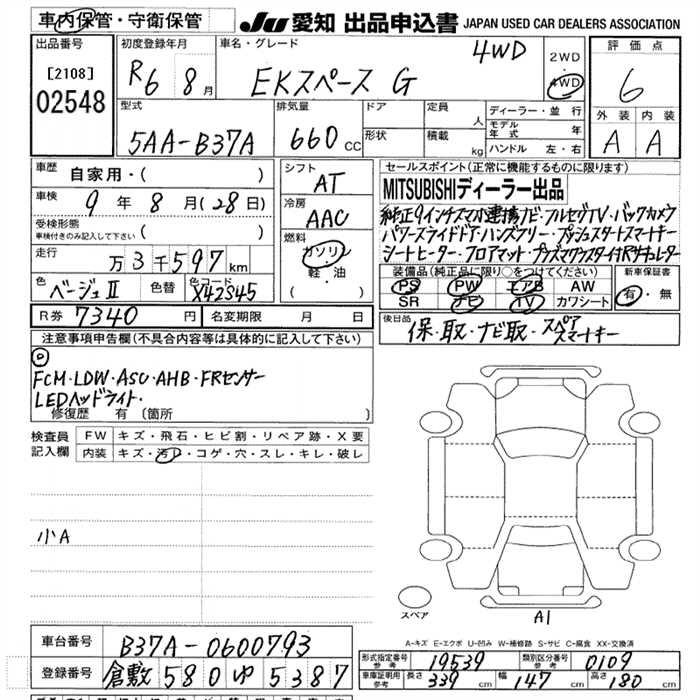 車内保管・守衛保管 JU 愛知 出品申込書 JAPAN USED CAR DEALERS ASSOCIATION
出品番号
[2108]
02548
初度登録年月
R6 8月
車名・グレード
4WD
EKスペース G
2WD
4WD
評価点
6
外装 内装
A A
型式
5AA-B37A
排気量
660 CC
ドア
形状
定員 人
積載 kg
ディーラー・並行
モデル年式 年
ハンドル 左・右
車歴
自家用・( )
車検
9年 8月(28日)
受検形態
車検付きのみ記入して下さい ( )
走行
万3千597km
色
ベージュII
色替
色コード
X42S45
シフト
AT
冷房
AAC
燃料
ガソリン
軽・油
( )
セールスポイント(正常に機能するものに限ります)
MITSUBISHIディーラー出品
純正9インチスマホ連携ナビ・フルセグTV・バックカメラ
パワースライドドア・ハンズフリー・プッシュスタートスマートキー
シートヒーター・フロアマット・プラズマクラスター付リヤサーキュレーター
装備品(純正品に限り○をつけて下さい)
PS PW エアB AW
SR ナビ TV カワシート
新車保証書
有・無
R券 7340円
名変期限 月 日
後日品
保・取・ナビ取・スペアスマートキー
注意事項申告欄(不具合内容等は具体的に記入して下さい)
FCM・LDW・ASC・AHB・FRセンサー
LEDヘッドライト・
修復歴 有 〔箇所 〕
検査員記入欄
FW キズ・飛石・ヒビ割・リペア跡・X要
内装 キズ・汚レ・コゲ・穴・スレ・キレ・破レ
小A
スペア
A1
A-キズ E-エクボ U-凹み W-補修跡 S-サビ C-腐食 XX-交換済
車台番号 B37A-0600793
登録番号 倉敷 580 ゆ 5387
形式指定番号
参考
19539
類別区分番号
参考
0109
車庫証明用
参考
長さ 339cm 幅 147cm 高さ 180cm